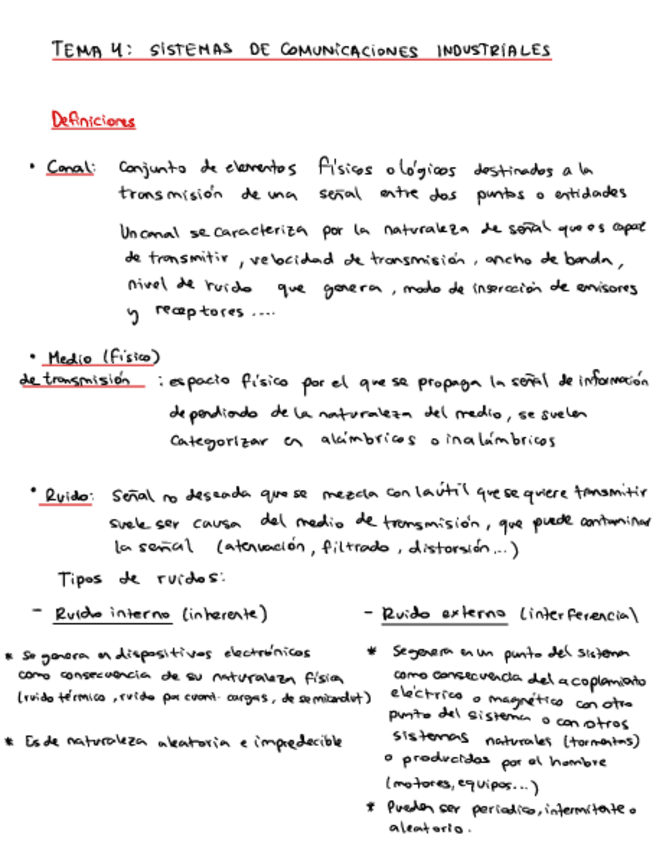 TEMA 4: SISTEMAS DE COMUNICACIONES INDUSTRIALES
Definiciones
• Canal: Conjunto de elementos físicos o lógicos destinados a la
transmisión de una señal entre dos puntos o entidades
Un canal se caracteriza por la naturaleza de señal que es capaz
de transmitir, velocidad de transmisión, ancho de banda,
nivel de ruido que genera, modo de inserción de emisores
y receptores ....
• Medio (físico)
de transmisión : espacio físico por el que se propaga la señal de información
dependiendo de la naturaleza del medio, se suelen
categorizar en alámbricos o inalámbricos
• Ruido: Señal no deseada que se mezcla con la útil que se quiere transmitir
suele ser causa del medio de transmisión, que puede contaminar
la señal (atenuación, filtrado, distorsión...)
Tipos de ruidos:
- Ruido interno (inherente)
* Se genera en dispositivos electrónicos
como consecuencia de su naturaleza física
(ruido térmico, ruido por cuant. cargas, de semicondut)
* Es de naturaleza aleatoria e impredecible
- Ruido externo (interferencia)
* Se genera en un punto del sistema
como consecuencia del acoplamiento
eléctrico o magnético con otro
punto del sistema o con otros
sistemas naturales (tormentas)
o producidos por el hombre
(motores, equipos...)
* Pueden ser periodico, intermitente o
aleatorio.